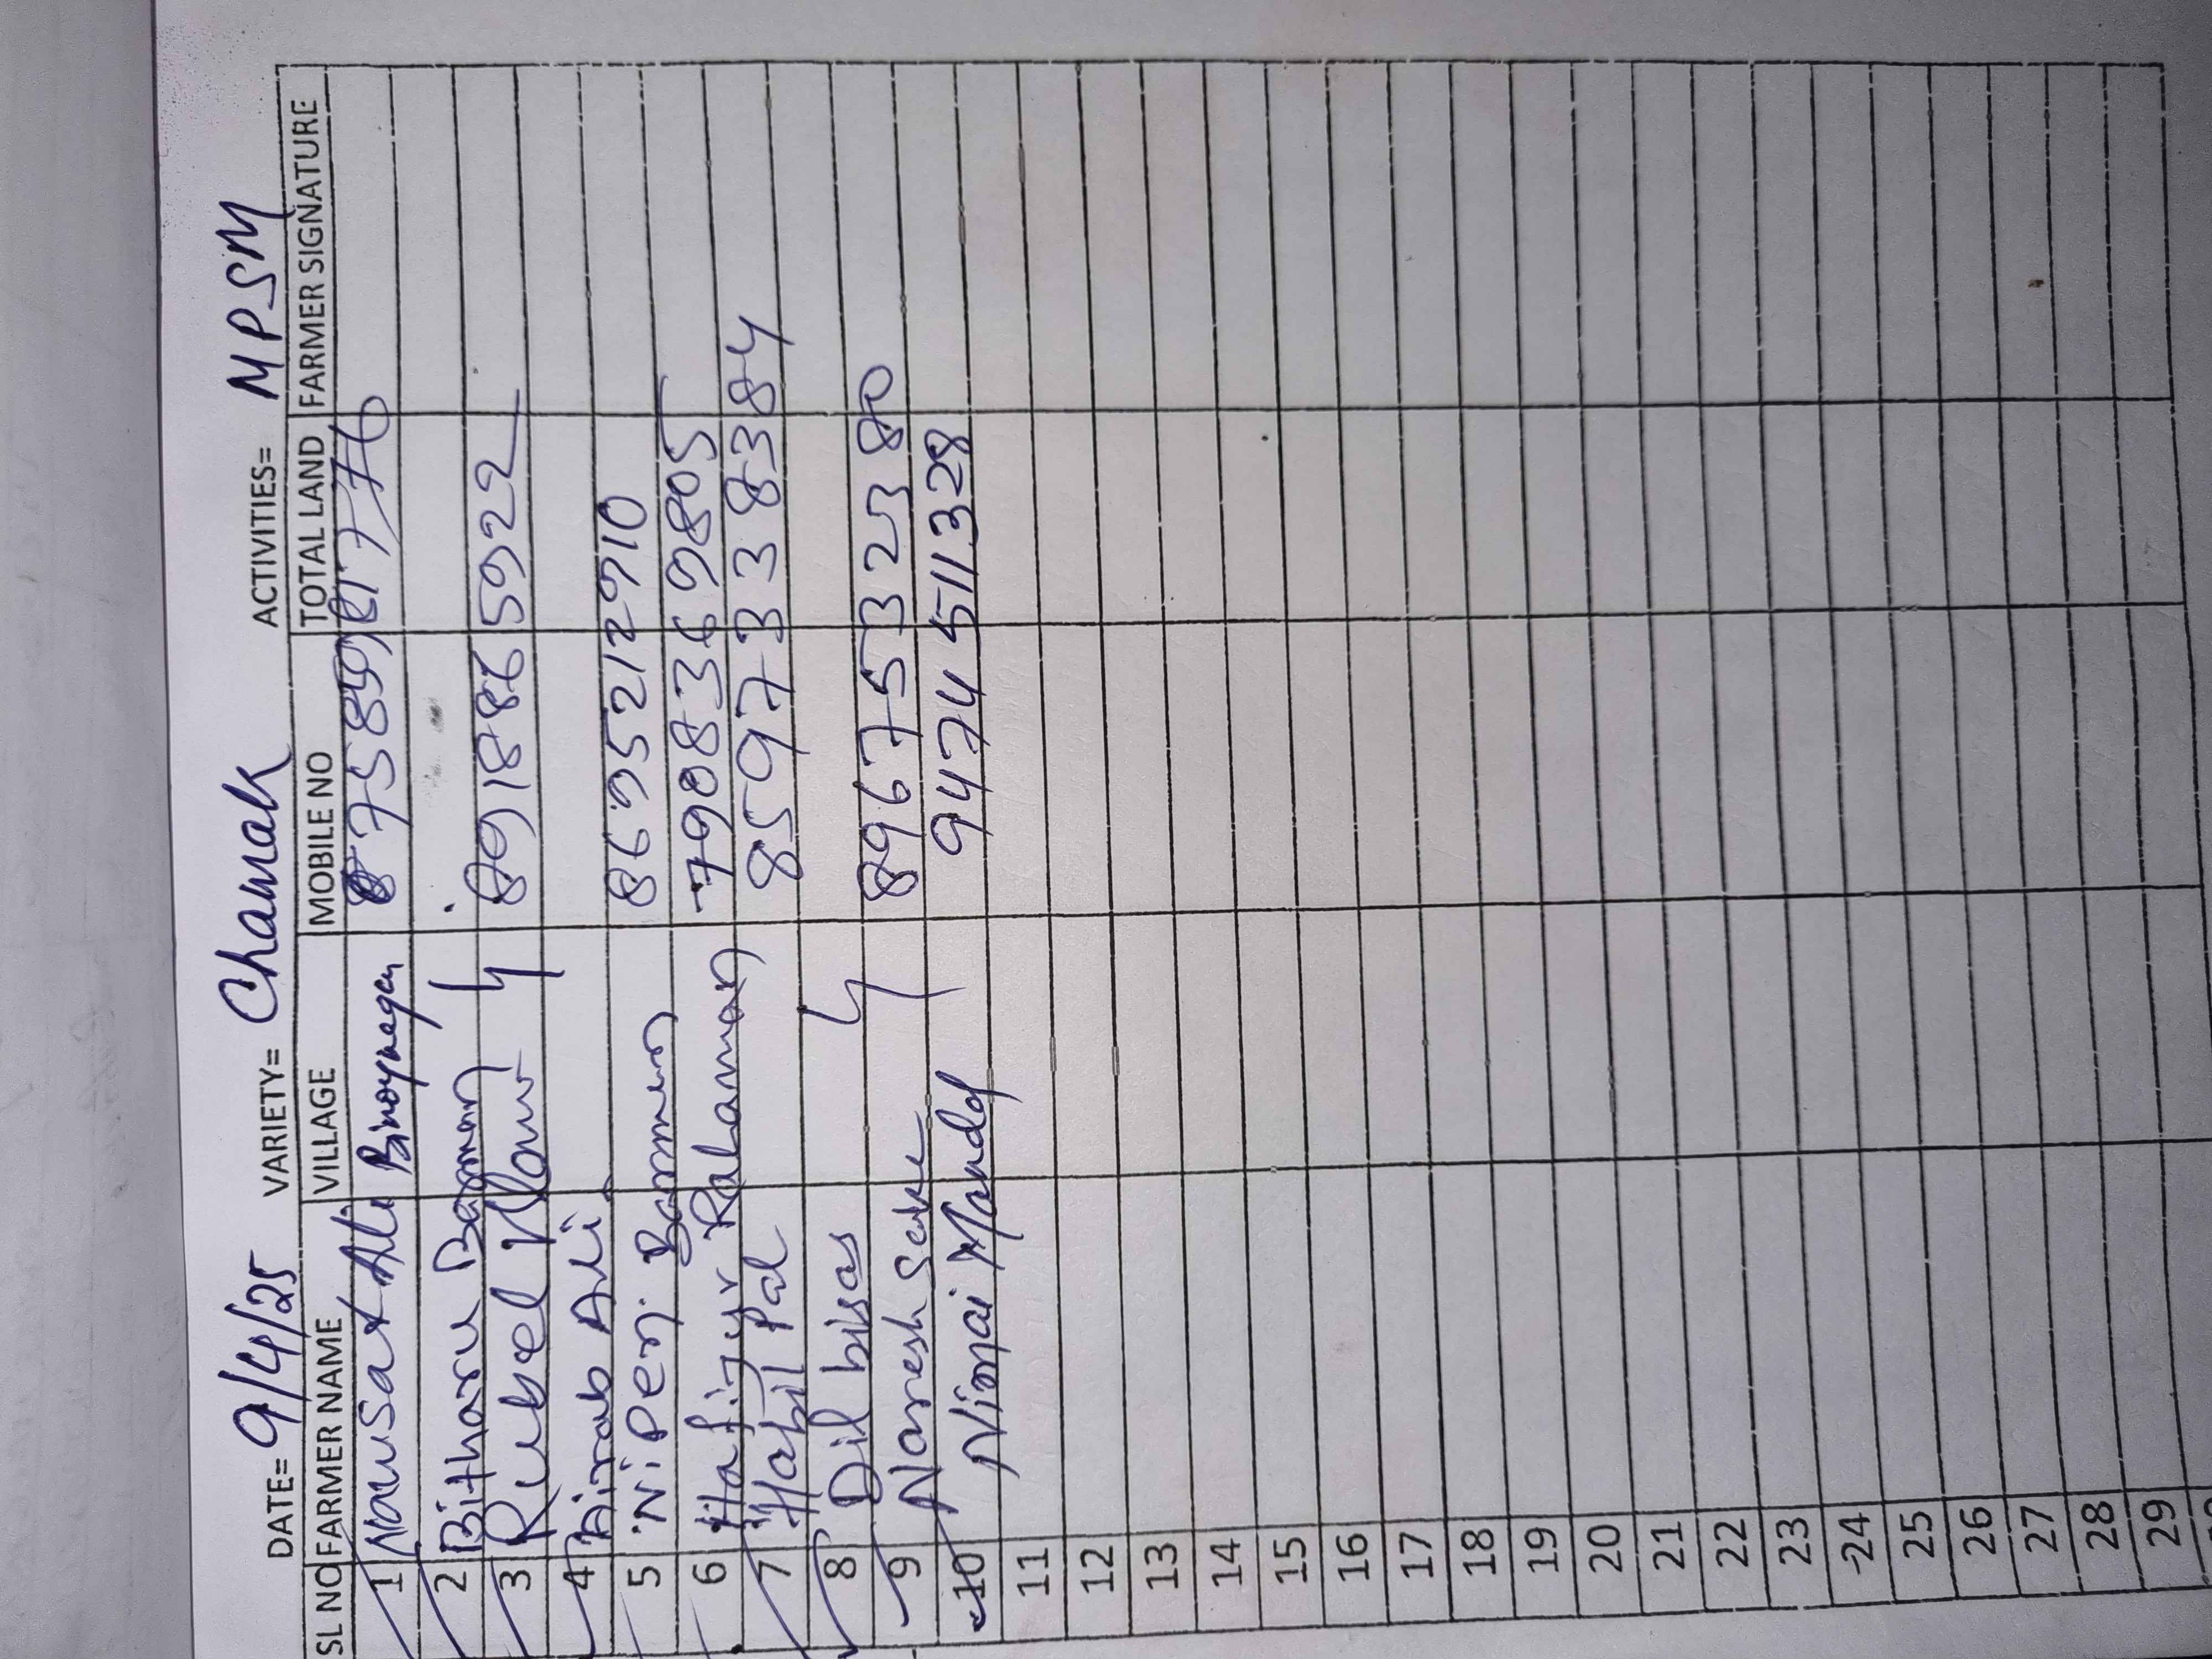 DATE= 9/4/25 VARIETY= Chamak ACTIVITIES= MPSM
SL NO FARMER NAME VILLAGE MOBILE NO TOTAL LAND FARMER SIGNATURE
1 Nousat Ali Binoynagar
2 Bitharu Barman
3 Rubel 8918865922
4 Airab Ali
5 Nipen Barman 8695212910
6 Hafizur Rahaman 7908369805
7 Habil Pal 8597338384
8 Dil bisas
9 Naresh 8967532380
10 Nimai Mandal 9474511328
11
12
13
14
15
16
17
18
19
20
21
22
23
24
25
26
27
28
29